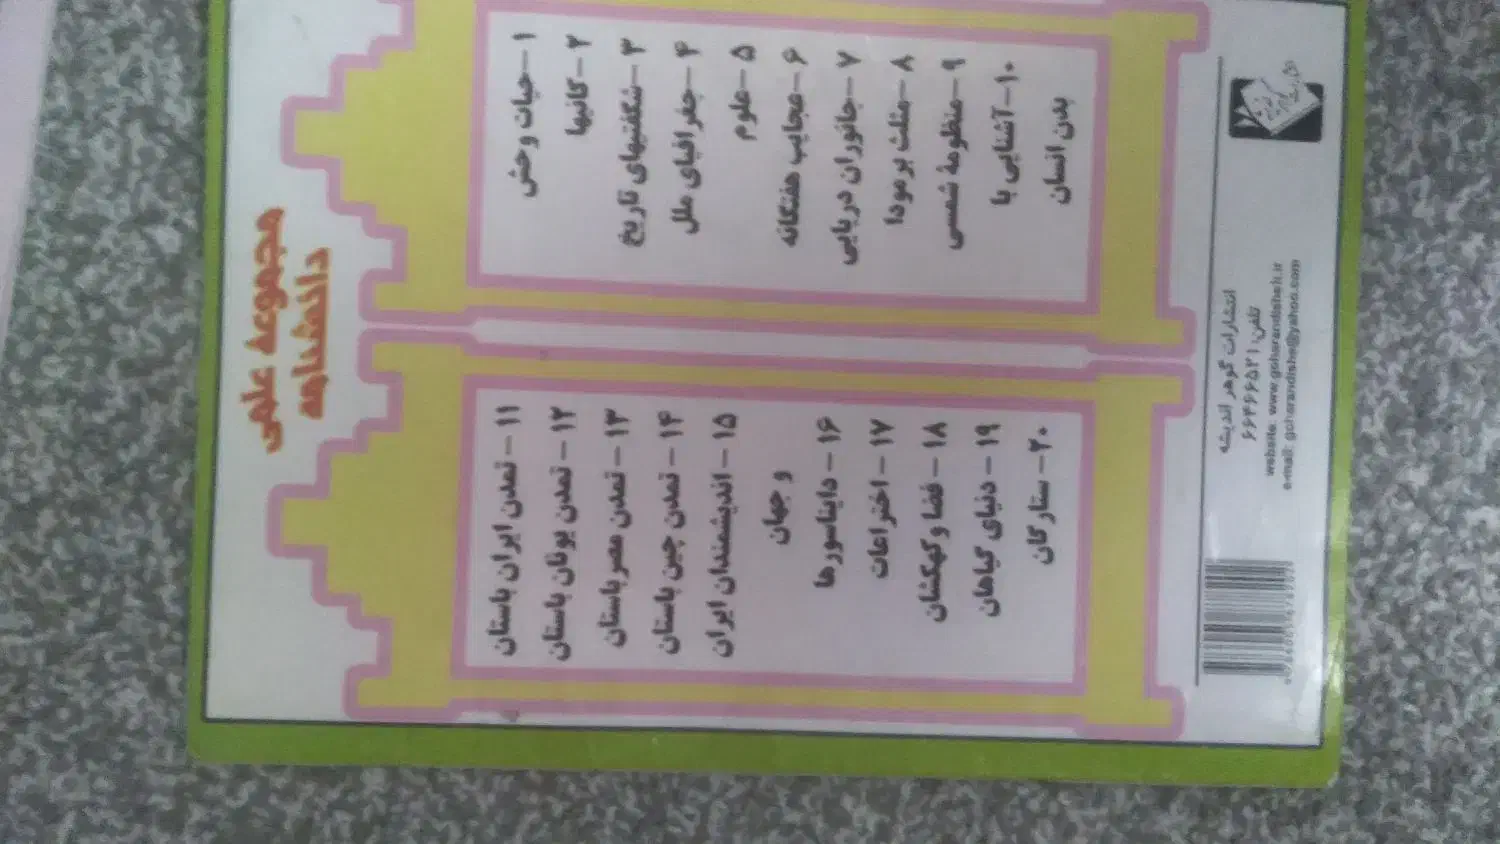 مجموعهٔ علمی
دانشنامه
۱-حیات وحش
۲-کانیها
۳-شگفتیهای تاریخ
۴-جغرافیای ملل
۵-علوم
۶-عجایب هفتگانه
۷-جانوران دریایی
۸-مثلث برمودا
۹-منظومهٔ شمسی
۱۰-آشنایی با
بدن انسان
۱۱-تمدن ایران باستان
۱۲-تمدن یونان باستان
۱۳-تمدن مصر باستان
۱۴-تمدن چین باستان
۱۵-اندیشمندان ایران
و جهان
۱۶-دایناسورها
۱۷-اختراعات
۱۸-فضا و کهکشان
۱۹-دنیای گیاهان
۲۰-ستارگان
انتشارات گوهر اندیشه
تلفن: ۶۶۴۶۶۵۲۱
website: www.goharandisheh.ir
e-mail: goharandishe@yahoo.com